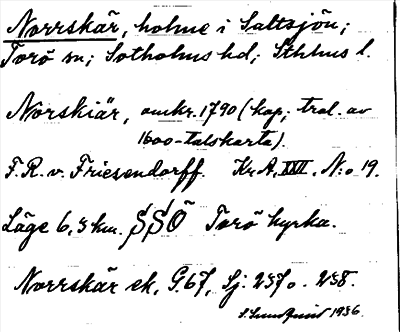 Norrskär, holme i Saltsjön;
Torö sn; Sotholms hd; Sthlms l.
Norskiär, omkr. 1790 (kop; trol. av
1600-talskarta).
F. R. v. Friesendorff. Kr.A, XXVI, N:o 19.
Läge 6,3 km. SSÖ Torö kyrka.
Norrskär ek, G.67, Sj. 237 o. 238.
1936.